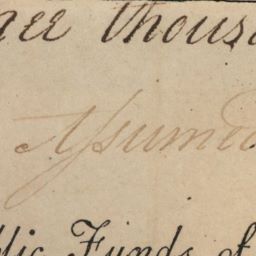 ree thous
Assumed
lic Funds of